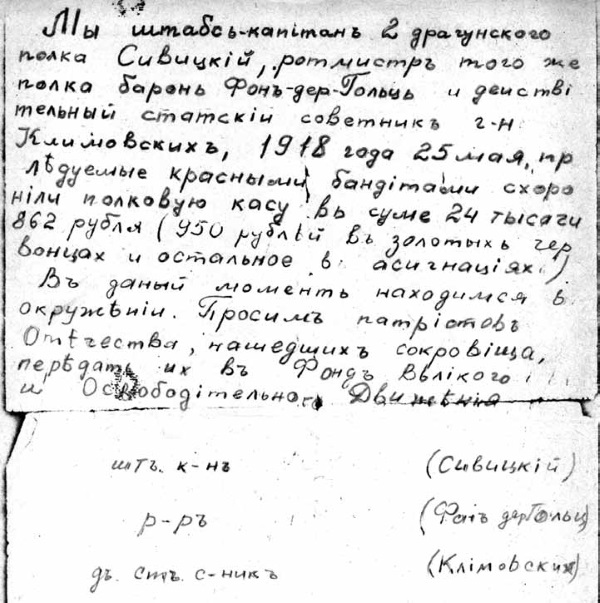 Мы штабсь-капітанъ 2 драгунского
полка Сивицкій, ротмистръ того же
полка баронь Фонъ-дер-Гольць и деистві
тельный статскіи советникъ г-н
Климовскихъ, 1918 года 25 мая, пр
лѣдуемые красными бандітами схоро
ніли полковую касу вь суме 24 тысячи
862 рубля (950 рублѣй въ золотыхъ чер
вонцах и остальное в асигнаціях)
Въ даный моменть находимся в
окружѣніи. Просимъ патріотовъ
Отѣчества, нашедшихъ сокровіща,
перѣдать их въ Фондъ Вѣликого
и Освободітельного Движѣнія
шт. к-нъ (Сивицкій)
р-ръ (Фонъ дерГольц)
дъ. стъ. с-никъ (Клімовских)